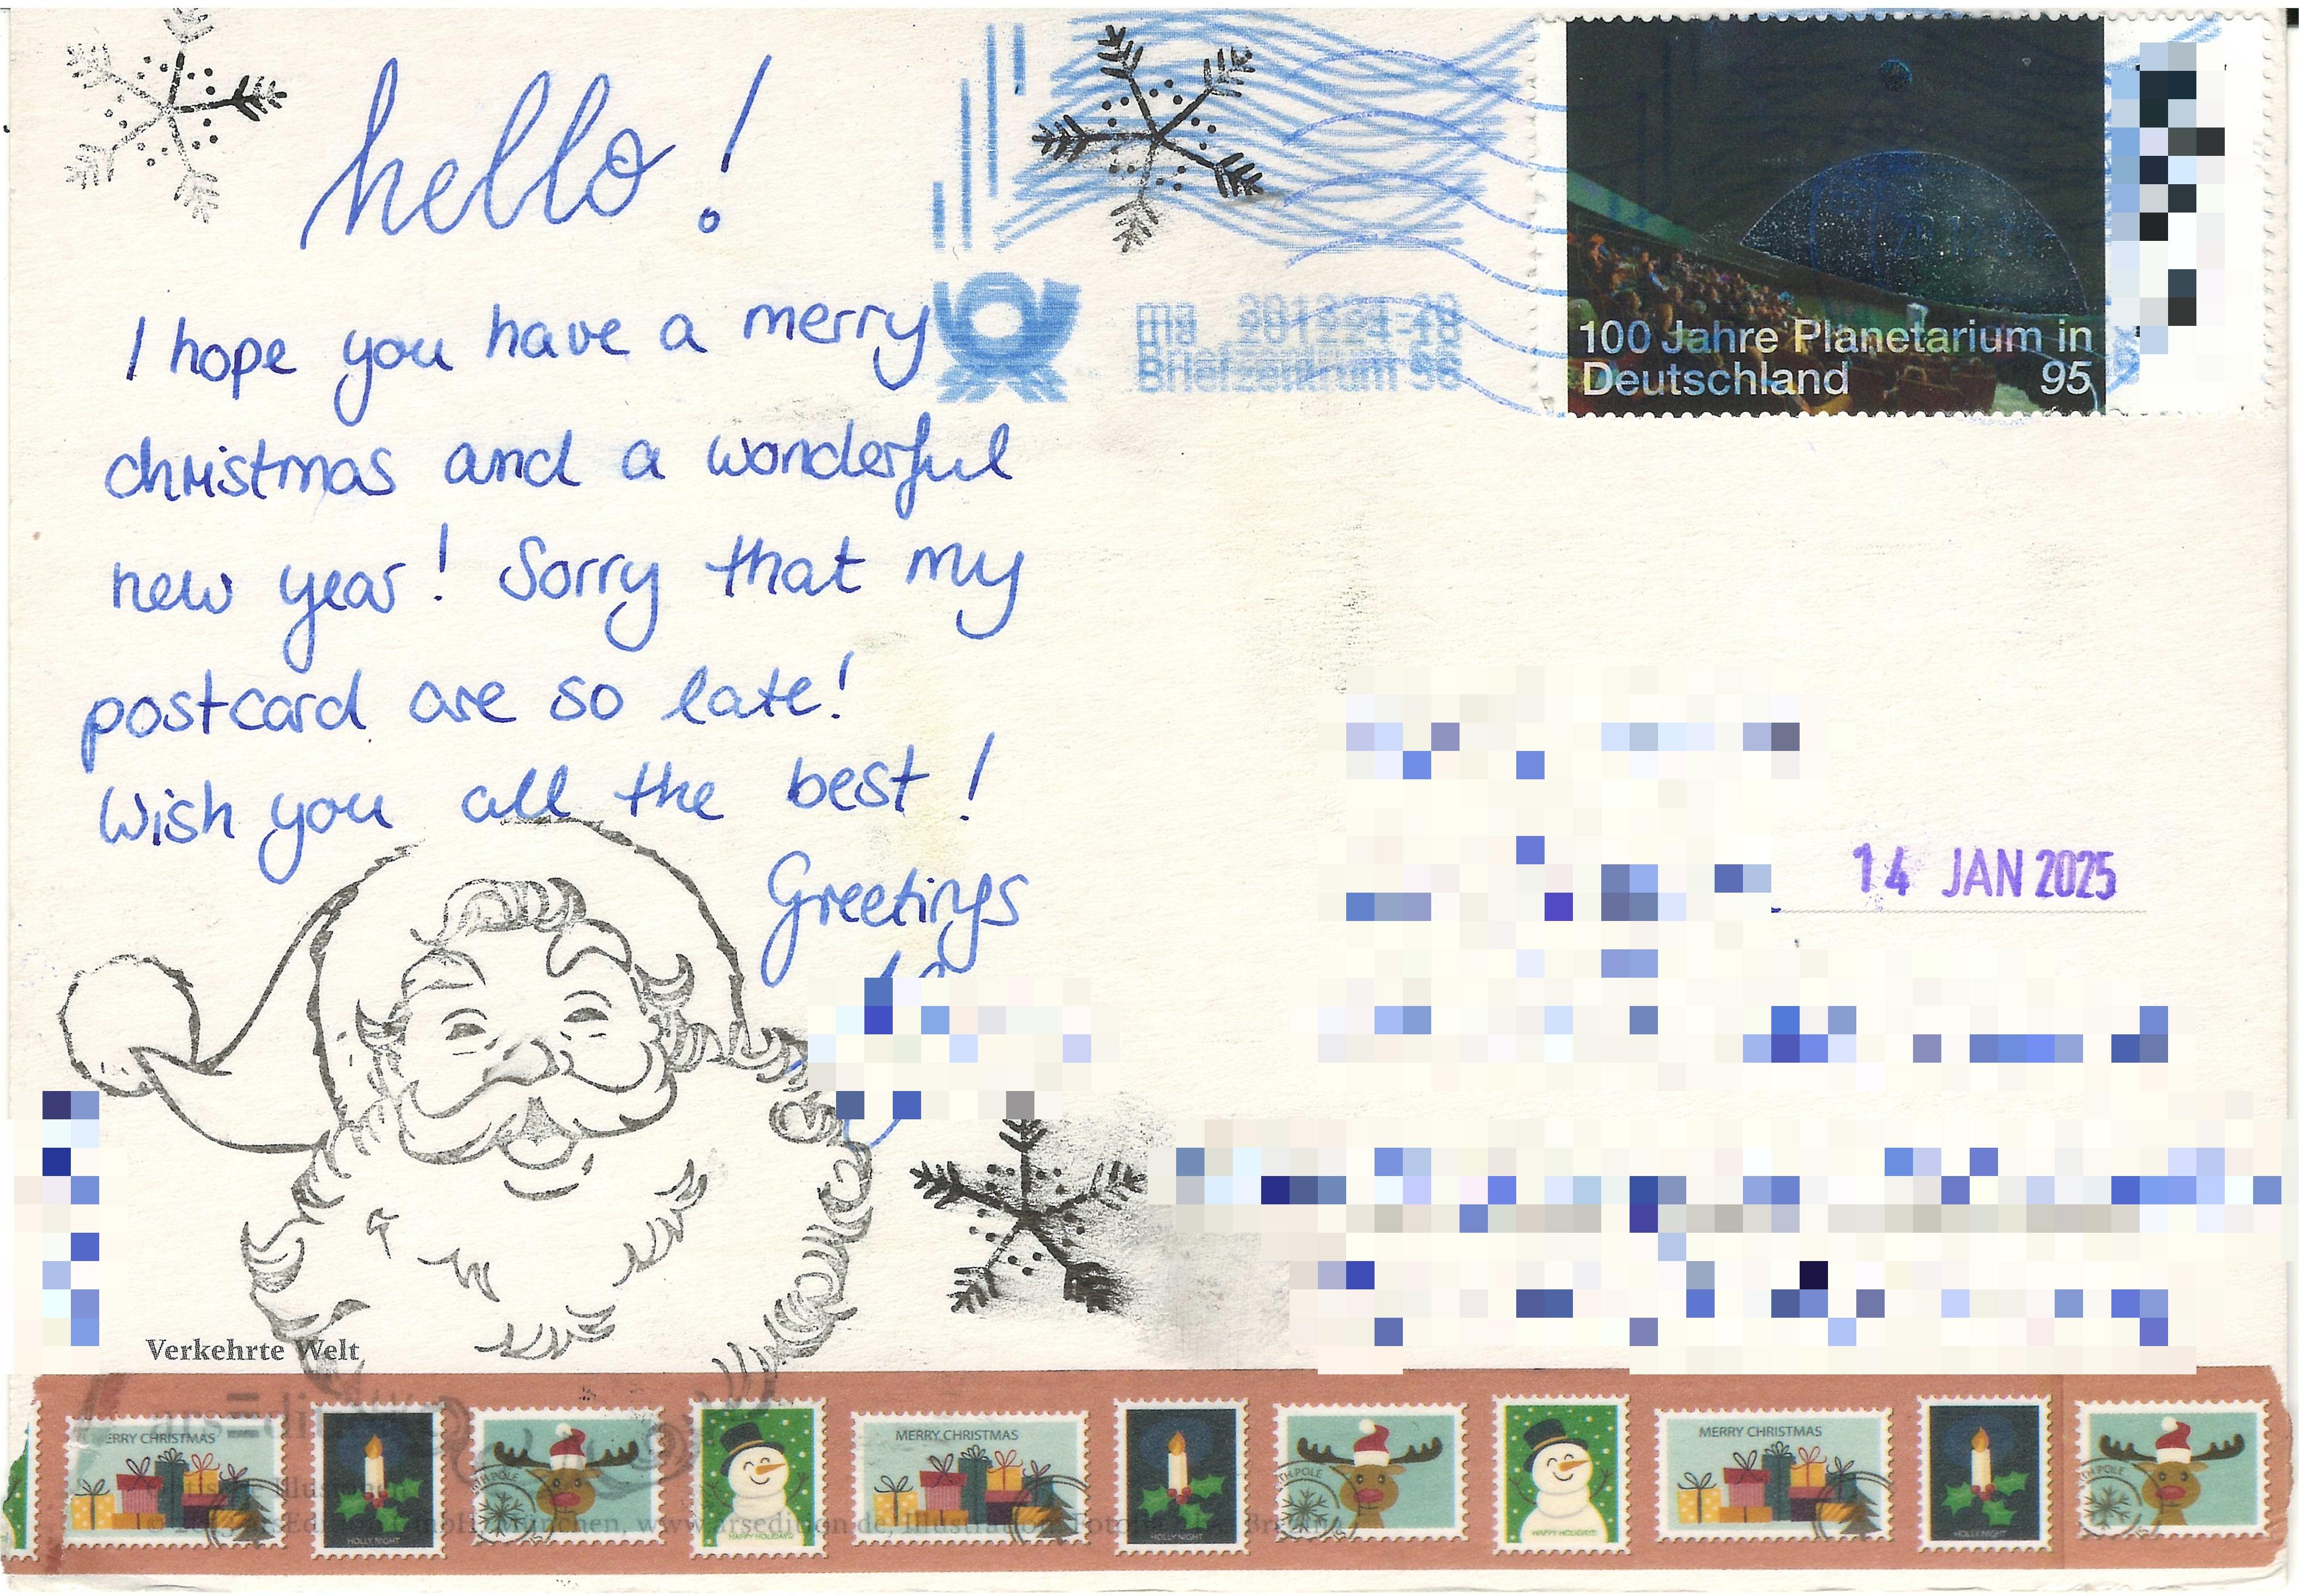 hello!
I hope you have a merry
christmas and a wonderful
new year! Sorry that my
postcard are so late!
Wish you all the best!
Greetings
Briefzentrum 96
100 Jahre Planetarium in
Deutschland 95
14 JAN 2025
Verkehrte Welt
arsEdition
MERRY CHRISTMAS
HOLLY NIGHT
HAPPY HOLIDAYS!
MERRY CHRISTMAS
HOLLY NIGHT
HAPPY HOLIDAYS!
MERRY CHRISTMAS
HOLLY NIGHT
München, www.arsedition.de, Illustration